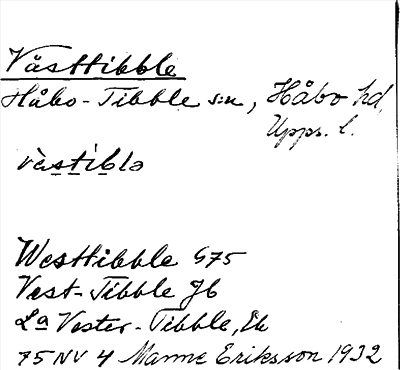 Västtibble
Håbo-Tibble sn, Håbo hd,
Upps. l.
västibla
Westtibble G75
Vest-Tibble Jb
La Vester-Tibble, Ek
75 NV 4 Manne Eriksson 1932